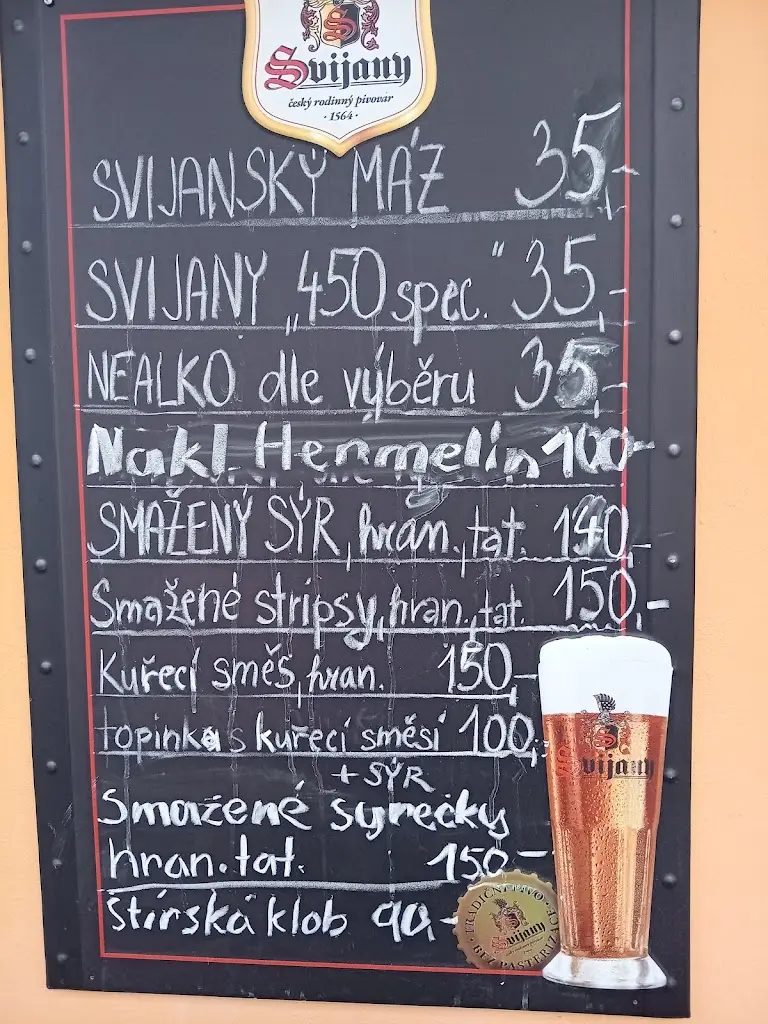 Svijany
český rodinný pivovar
· 1564 ·
SVIJANSKÝ MÁZ 35,-
SVIJANY „450 spec." 35,-
NEALKO dle výběru 35,-
Nakl. Hermelín 100-
SMAŽENÝ SÝR, hran., tat. 140,-
Smažené stripsy, hran., tat. 150,-
Kuřecí směs, hran. 150,-
topinka s kuřecí směsí 100,-
+ SÝR
Smažené syrečky
hran. tat. 150-
Štírská klob 90,-
Svijany
TRADIČNÍ PIVO
Svijany
BEZ PASTERIZ